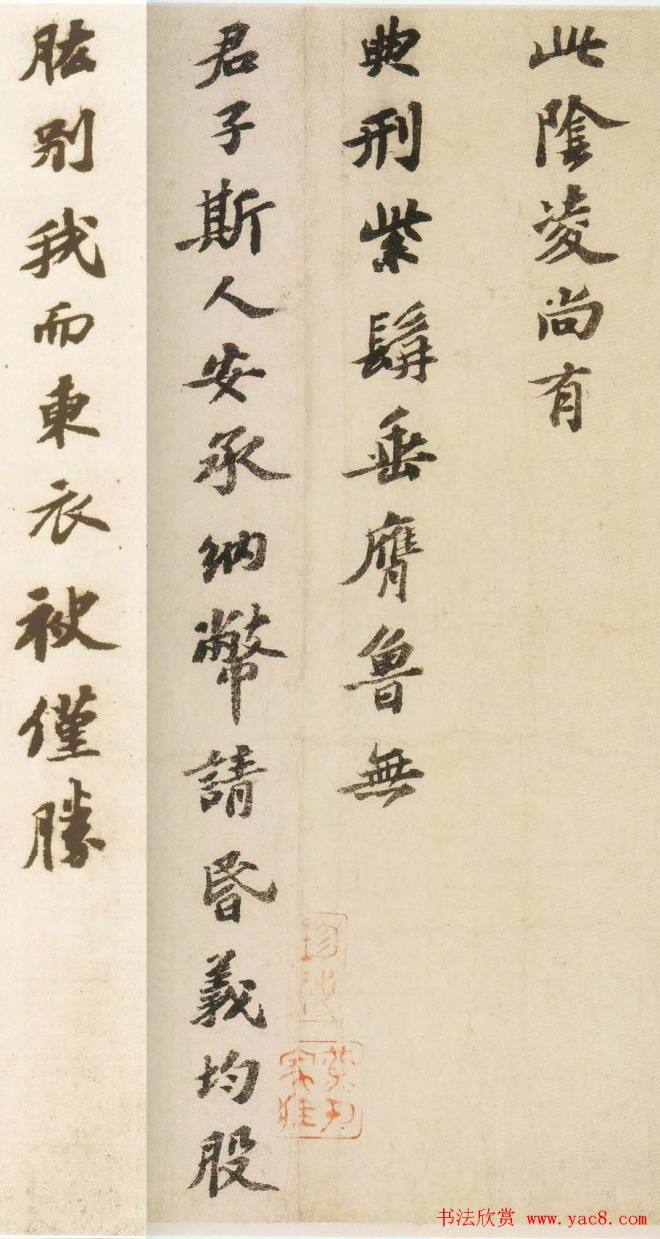 此陰凌尚有
典刑紫髯垂膺魯無
君子斯人安承納幣請昏義均股
肱別我而東衣被僅勝
书法欣赏 www.yac8.com